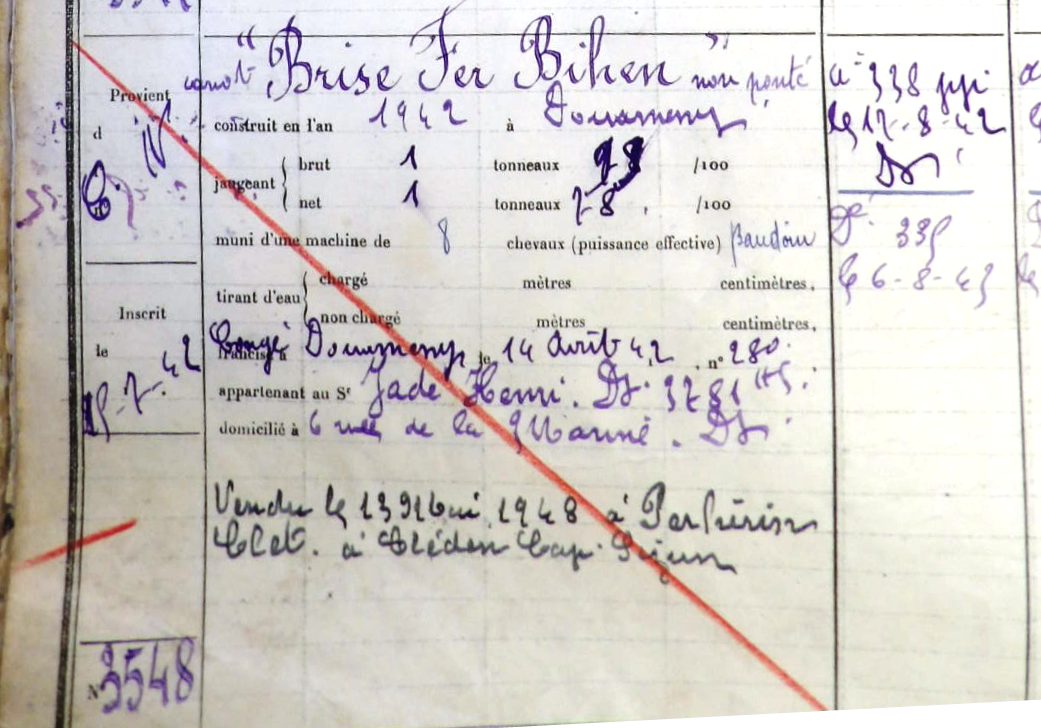 canot "Brise Fer Bihen" non ponté
Provient
d
N.
construit en l'an 1942 à Douarnenez
jaugeant
brut 1 tonneaux 78 /100
net 1 tonneaux 78 /100
muni d'une machine de 8 chevaux (puissance effective) Baudouin
tirant d'eau
chargé mètres centimètres,
non chargé mètres centimètres,
Inscrit
le
Congé Douarnenez le 14 Août 42, n° 280.
francisé à
appartenant au Sr Jade Henri. Dz. 3781
domicilié à 6 rue de la Marine. Dz
Vendu le 13 Mai 1948 à Perhérin
Clet. à Cléden Cap. Sizun
N° 3548
a 338
le 17-8-42
Dz
Dz 339
le 6-8-43